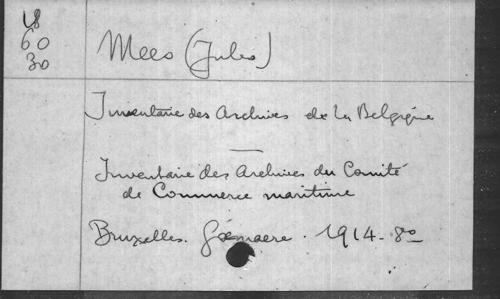 18
60
30
Mees (Jules)
Inventaire des Archives de la Belgique
Inventaire des Archives du Comité
de Commerce maritime
Bruxelles. Goemaere. 1914 - 8o